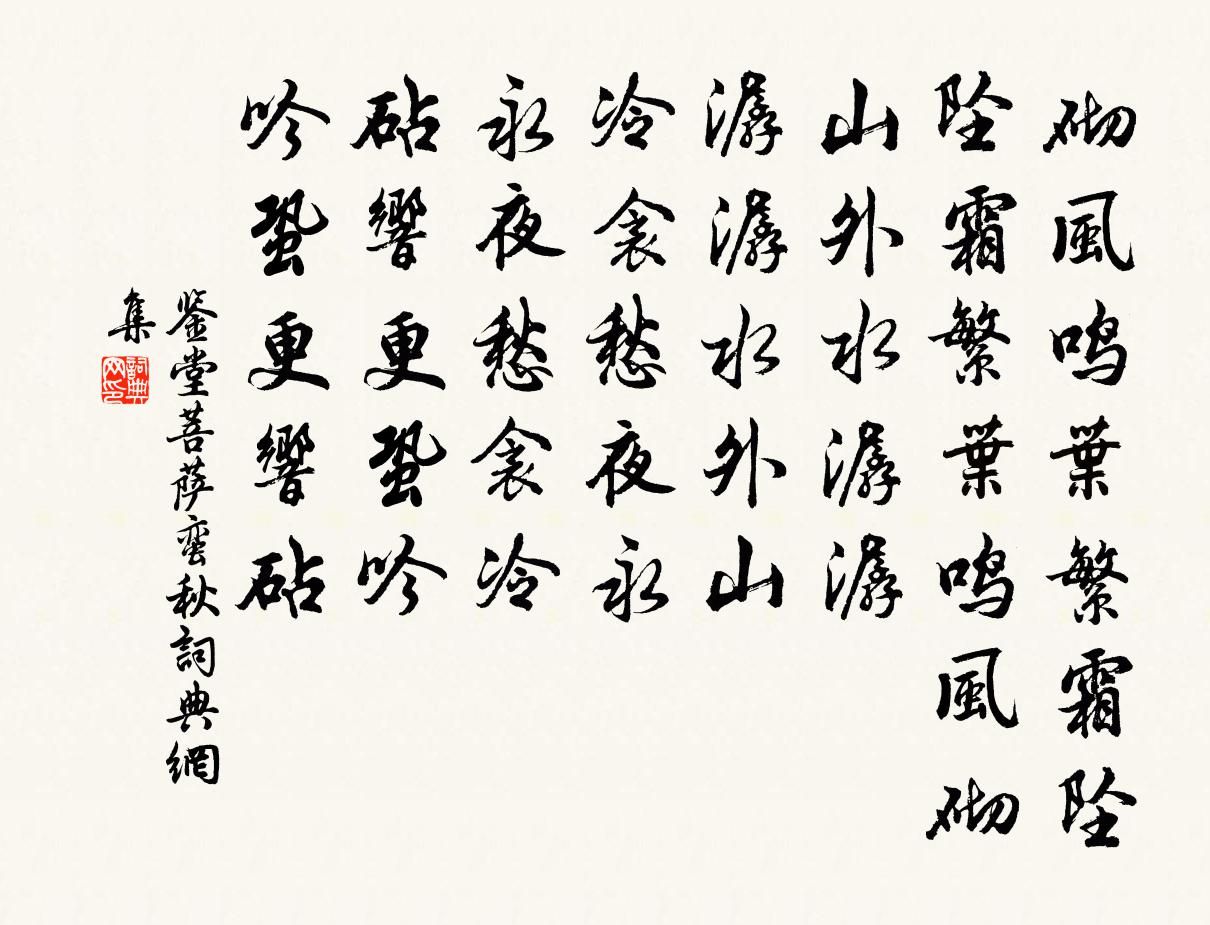 砌風鸣葉繁霜坠
坠霜繁葉鸣風砌
山外水潺潺
潺潺水外山
冷衾愁夜永
永夜愁衾冷
砧響更蛩吟
吟蛩更響砧
鉴堂菩萨蛮秋詞典網
集
詞典
网印